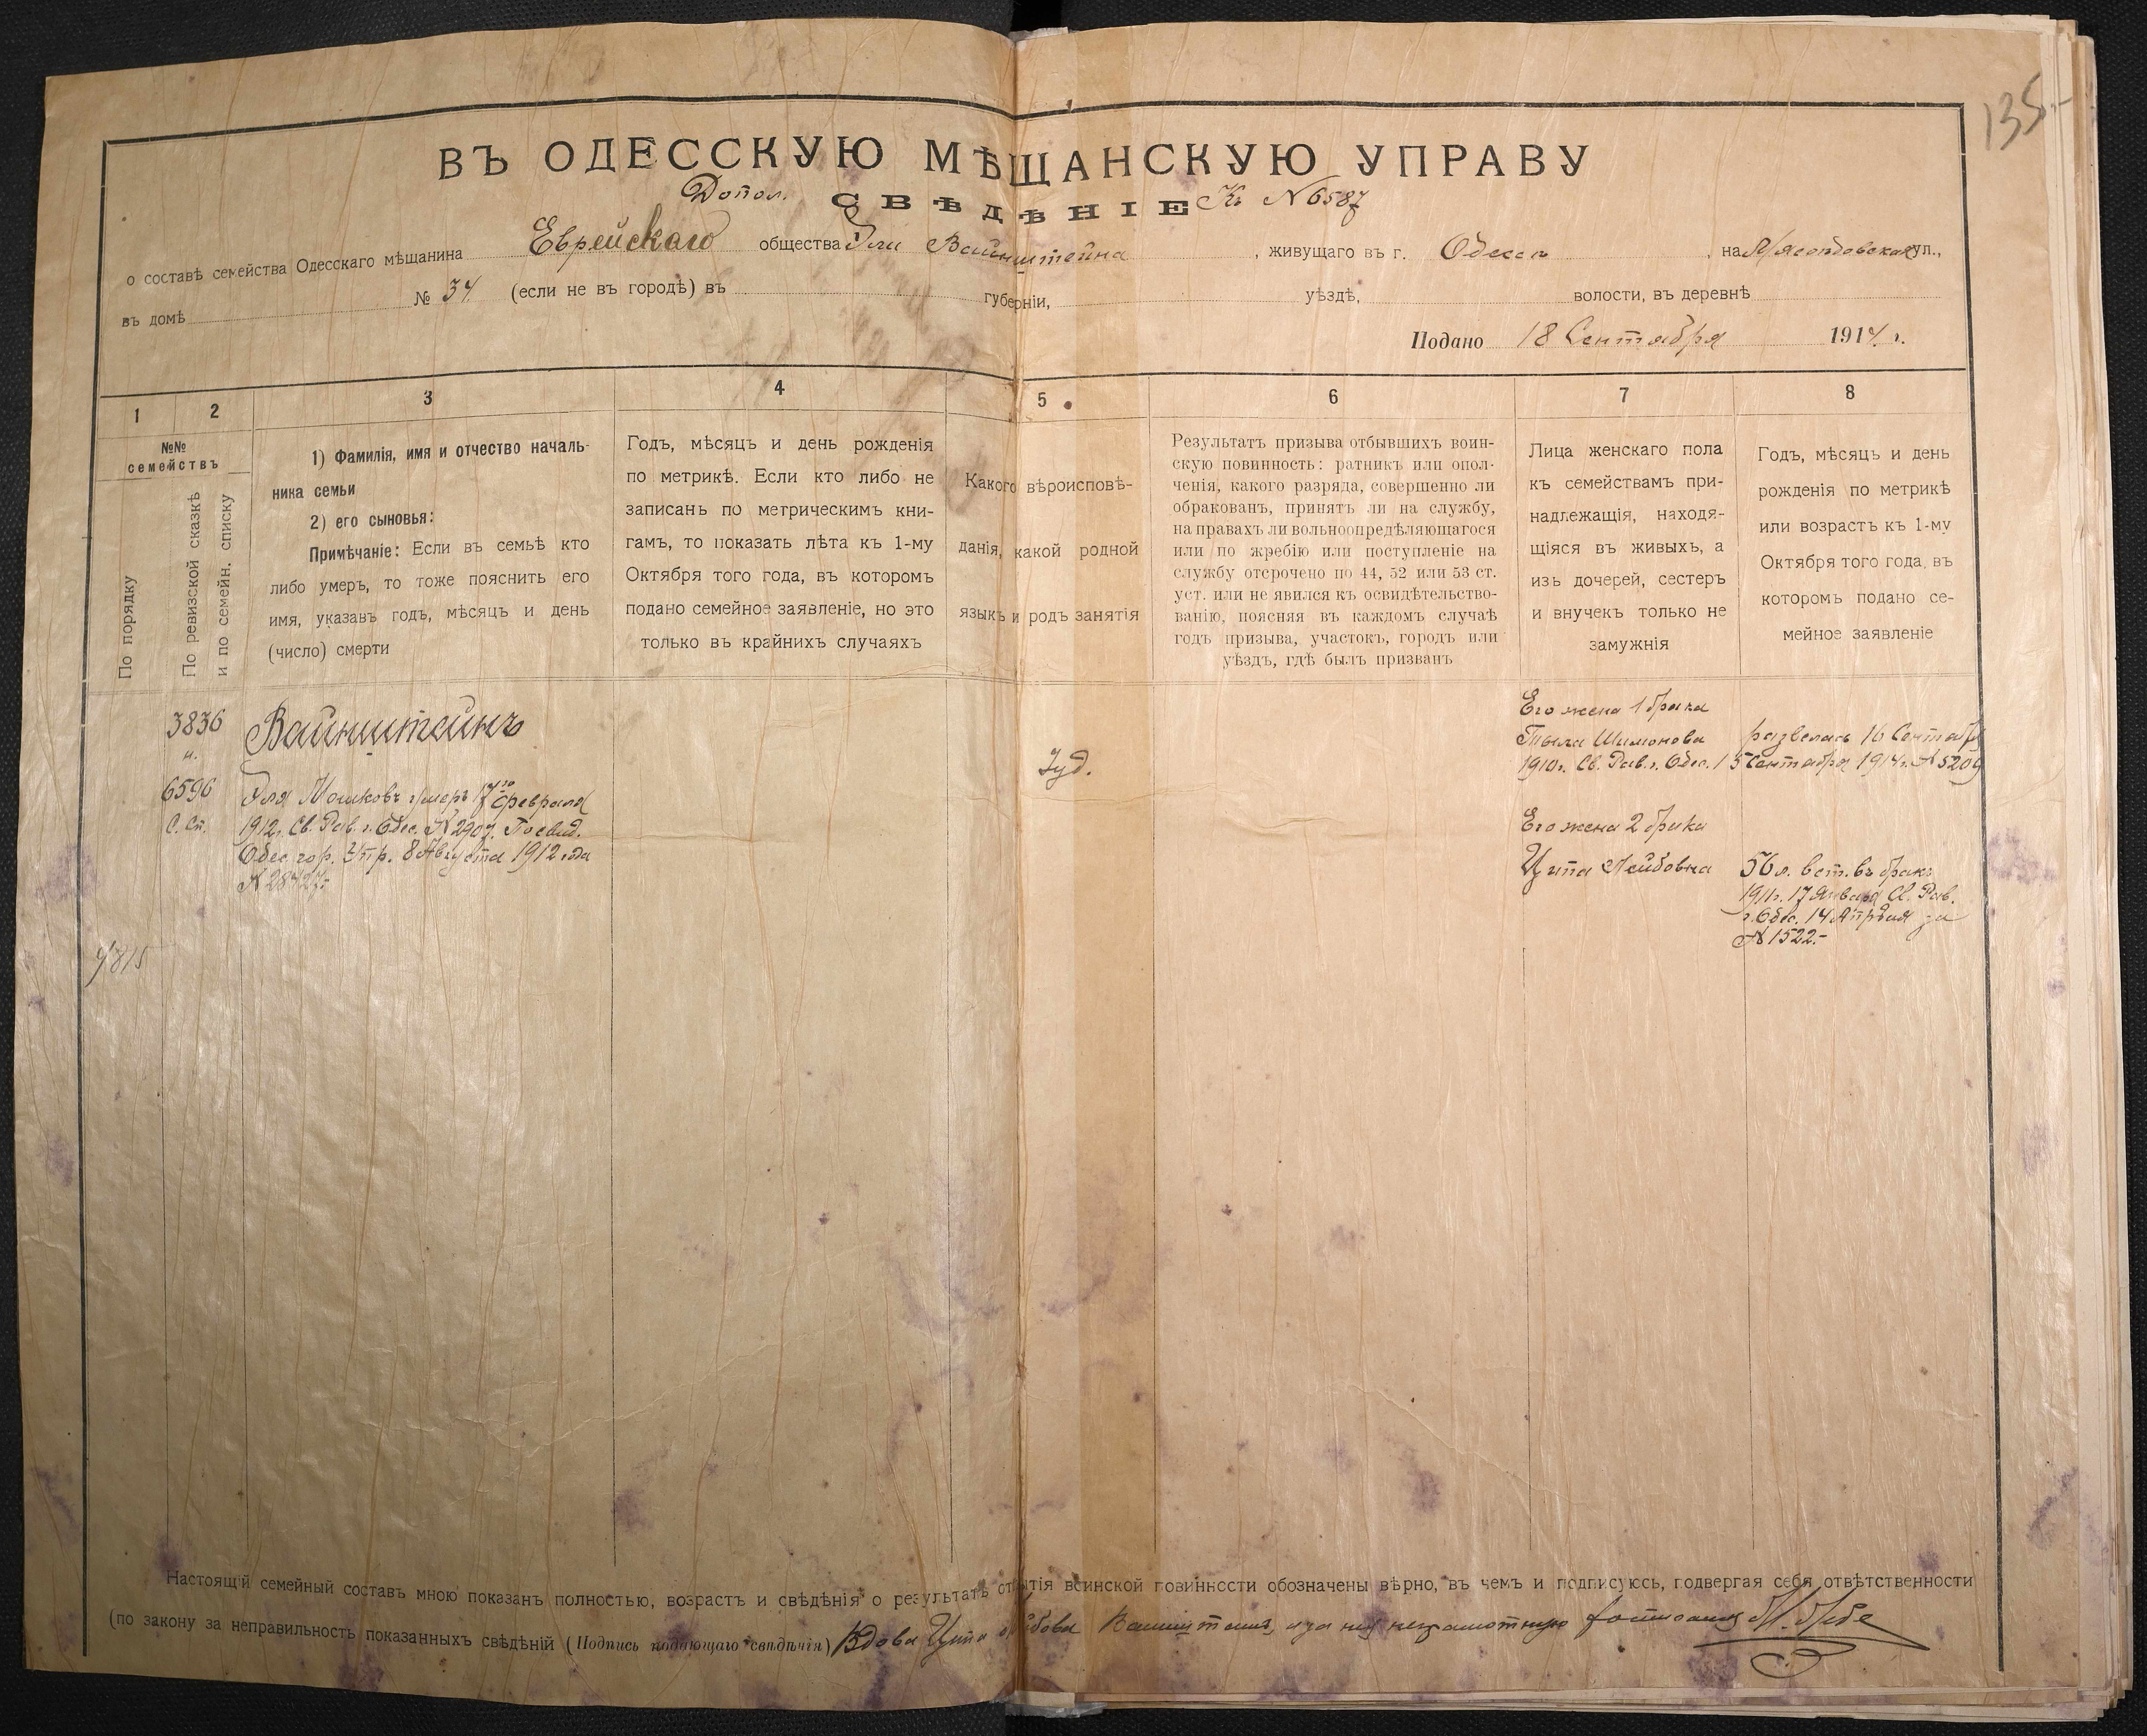 135.-
ВЪ ОДЕССКУЮ МѢЩАНСКУЮ УПРАВУ
Допол. СВѢДѢНІЕ Къ № 6587
о составѣ семейства Одесскаго мѣщанина Еврейскаго общества Эли Вайнштейна, живущаго въ г. Одессѣ, на Мясоѣдовская ул.,
въ домѣ № 34 (если не въ городѣ) въ губерніи, уѣздѣ, волости, въ деревнѣ
Подано 18 Сентября 1914 г.
1 2 3 4 5 6 7 8
№№
семействъ
По порядку
По ревизской сказкѣ
и по семейн. списку
1) Фамилія, имя и отчество началь-
ника семьи
2) его сыновья:
Примѣчаніе: Если въ семьѣ кто
либо умеръ, то тоже пояснить его
имя, указавъ годъ, мѣсяцъ и день
(число) смерти
Годъ, мѣсяцъ и день рожденія
по метрикѣ. Если кто либо не
записанъ по метрическимъ кни-
гамъ, то показать лѣта къ 1-му
Октября того года, въ которомъ
подано семейное заявленіе, но это
только въ крайнихъ случаяхъ
Какого вѣроисповѣ-
данія, какой родной
языкъ и родъ занятія
Результатъ призыва отбывшихъ воин-
скую повинность: ратникъ или опол-
ченія, какого разряда, совершенно ли
обракованъ, принятъ ли на службу,
на правахъ ли вольноопредѣляющагося
или по жребію или поступленіе на
службу отсрочено по 44, 52 или 53 ст.
уст. или не явился къ освидѣтельство-
ванію, поясняя въ каждомъ случаѣ
годъ призыва, участокъ, городъ или
уѣздъ, гдѣ былъ призванъ
Лица женскаго пола
къ семействамъ при-
надлежащія, находя-
щіяся въ живыхъ, а
изъ дочерей, сестеръ
и внучекъ только не
замужнія
Годъ, мѣсяцъ и день
рожденія по метрикѣ
или возрастъ къ 1-му
Октября того года, въ
которомъ подано се-
мейное заявленіе
3836
и.
6596
С. Сп.
Вайнштейнъ
Эля Мошковъ умеръ 17го февраля
1912г. Св. Рав. г. Одес. № 2907. По свид.
Одес. гор. Упр. 8 Августа 1912 года
№ 28427.-
9815
Іуд.
Его жена 1 брака
Тыла Шимонова развелась 16 Сентябр
1910г. Св. Рав. г. Одес. 15 Сентября 1914г. № 5209
Его жена 2 брака
Ципа Лейбовна
56 л. вст. въ бракъ
1911г. 17 Января Св. Рав.
г. Одес. 14 Апрѣля за
№ 1522.-
Настоящій семейный составъ мною показанъ полностью, возрастъ и свѣдѣнія о результатѣ отбытія воинской повинности обозначены вѣрно, въ чемъ и подписуюсь, подвергая себя отвѣтственности
(по закону за неправильность показанныхъ свѣдѣній (Подпись подающаго свѣдѣнія) Вдова Ципа Лейбова Вайнштейнъ, а за нея неграмотную росписался